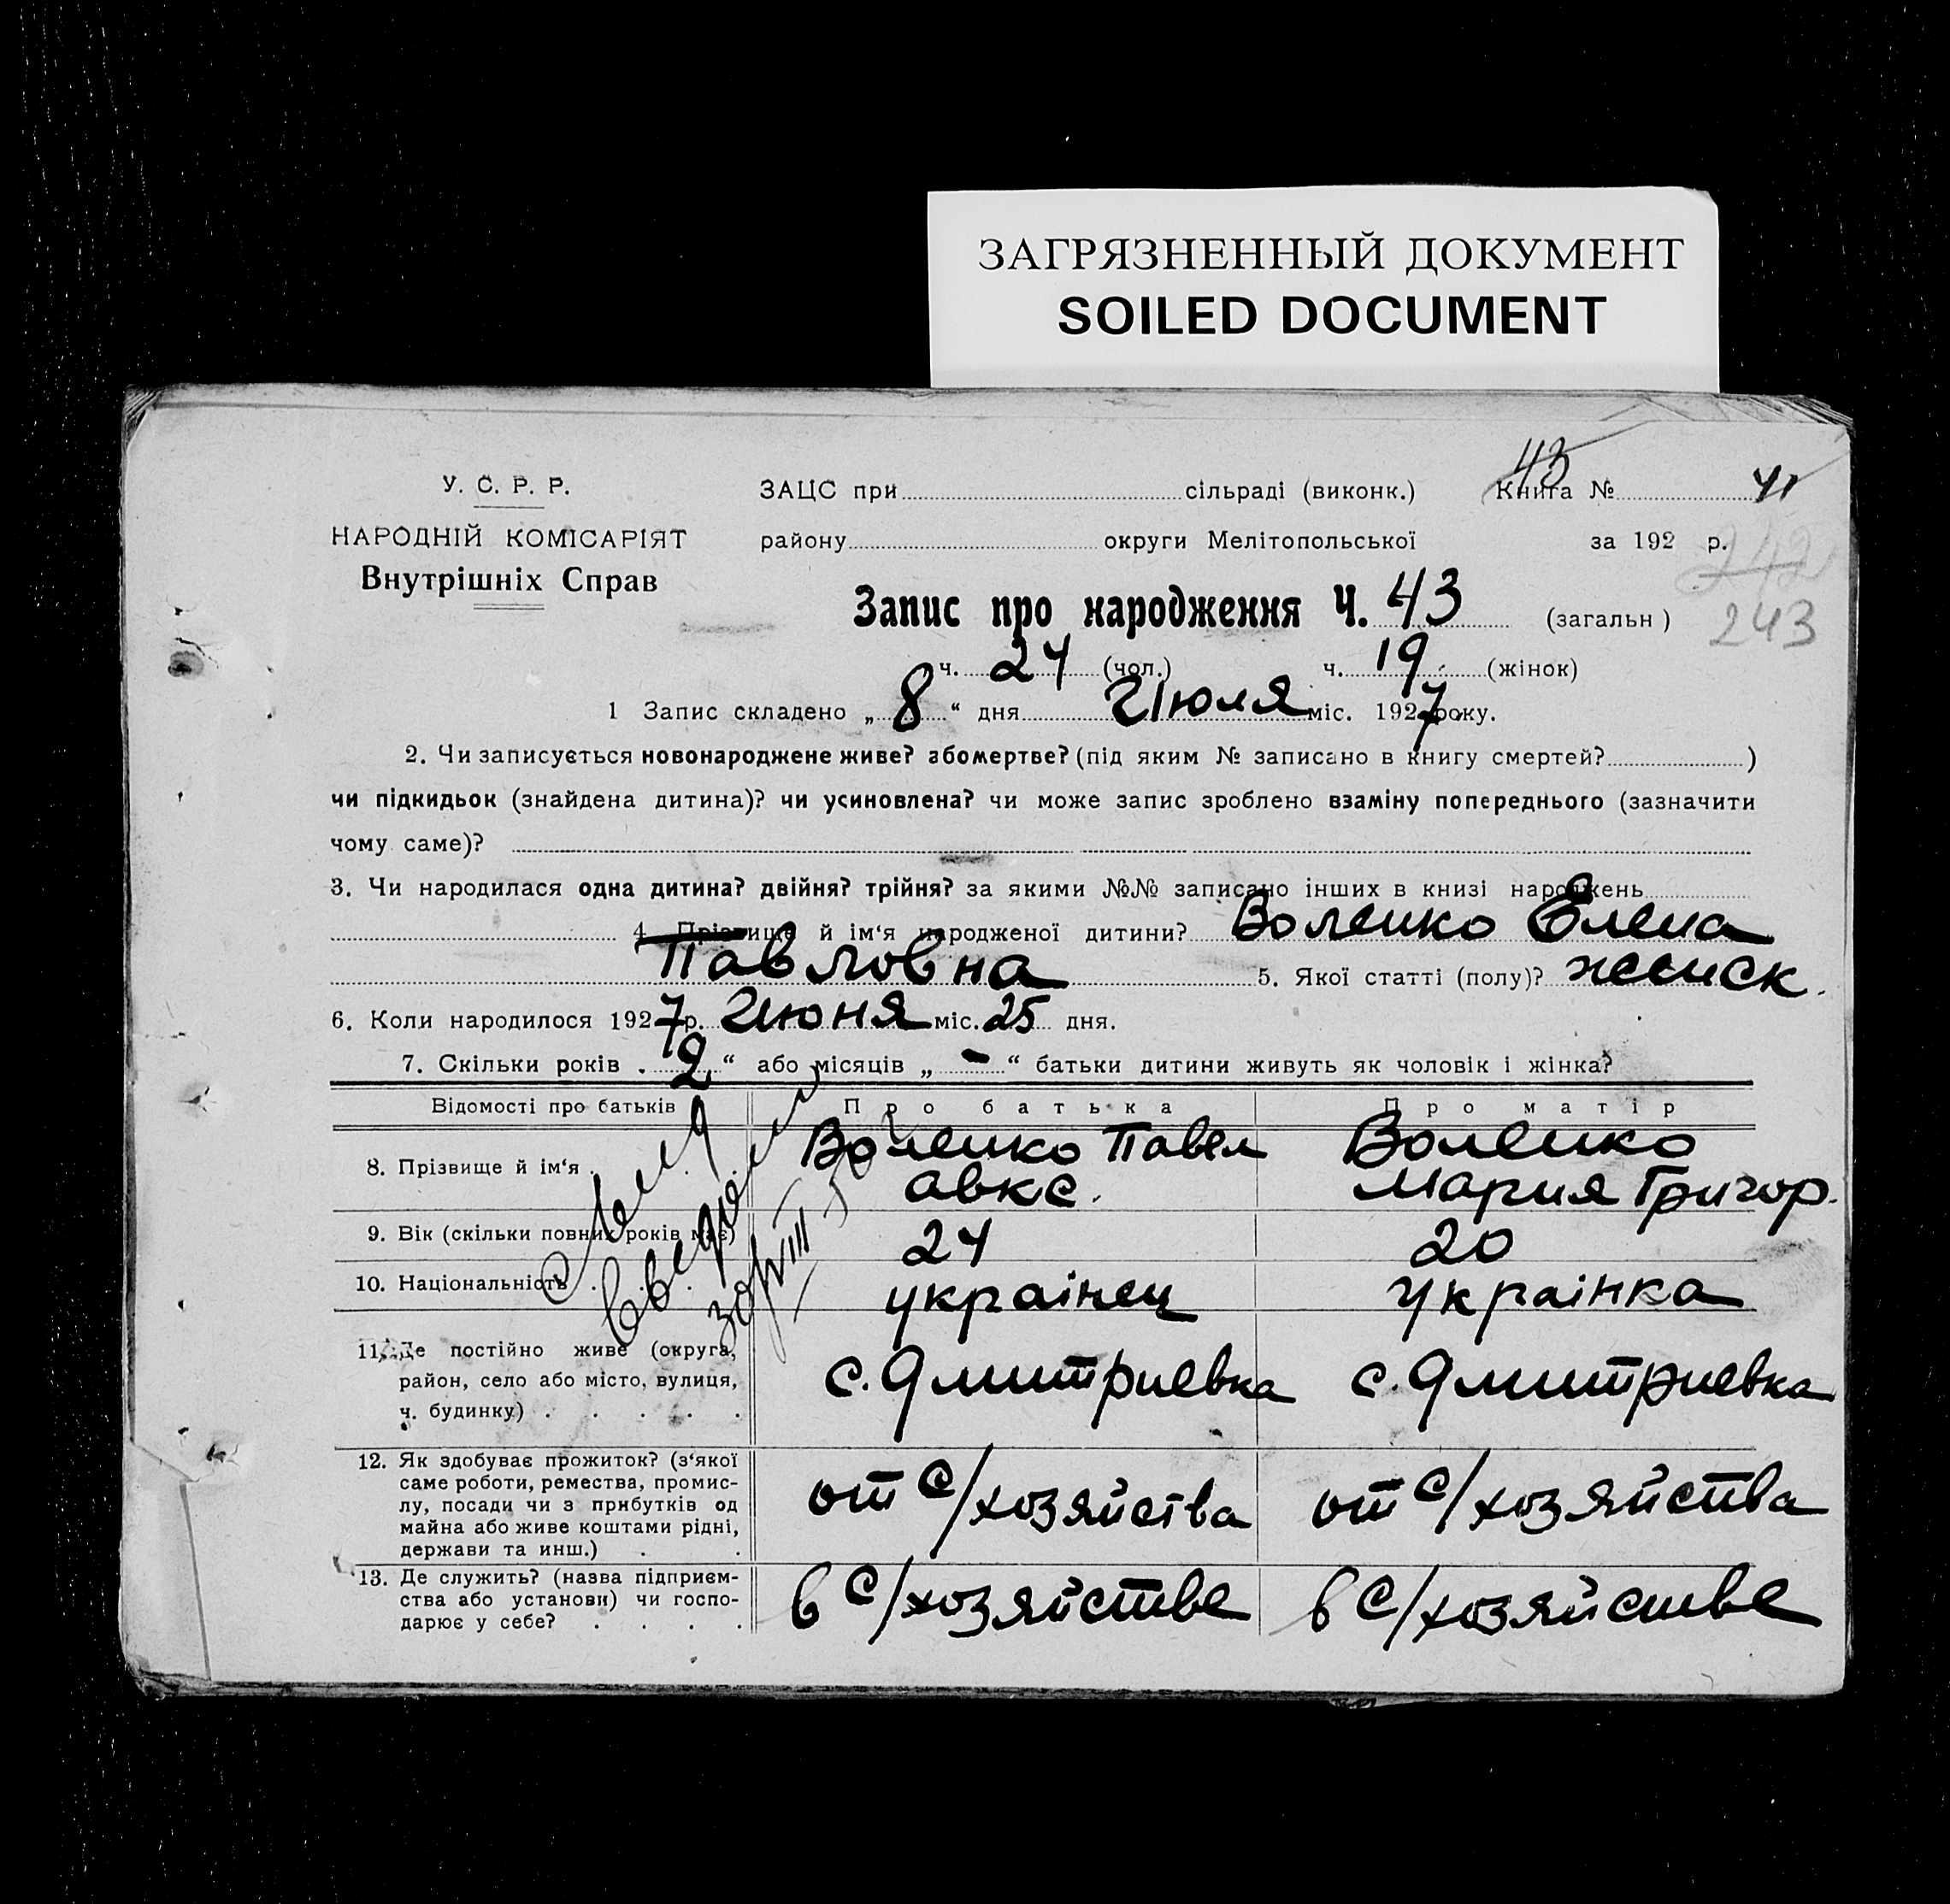 ЗАГРЯЗНЕННЫЙ ДОКУМЕНТ
SOILED DOCUMENT
43
У. С. Р. Р.
ЗАЦС при сільраді (виконк.) Книга №
НАРОДНІЙ КОМІСАРІЯТ
району округи Мелітопольської за 192 р.
Внутрішніх Справ
242
Запис про народження Ч. 43 (загальн)
243
ч. 24 (чол.) ч. 19 (жінок)
1 Запис складено „ 8 “ дня Июля міс. 1927 року.
2. Чи записується новонароджене живе? або мертве? (під яким № записано в книгу смертей? )
чи підкидьок (знайдена дитина)? чи усиновлена? чи може запис зроблено взаміну попереднього (зазначити
чому саме)?
3. Чи народилася одна дитина? двійня? трійня? за якими №№ записано інших в книзі народжень
4. Прізвище й ім‘я народженої дитини? Воленко Елена
Павловна 5. Якої статті (полу)? женск.
6. Коли народилося 1927 р. Июня міс. 25 дня.
7. Скільки років „ 2 “ або місяців „ - “ батьки дитини живуть як чоловік і жінка?
Відомості про батьків Про батька Про матір
8. Прізвище й ім‘я . Воленко Павел Воленко
Авкс. Мария Григор.
9. Вік (скільки повних років має) 24 20
10. Національність . . . українец українка
11. Де постійно живе (округа,
район, село або місто, вулиця, с. Дмитриевка с. Дмитриевка
ч. будинку) . . . . .
12. Як здобуває прожиток? (з‘якої
саме роботи, ремества, промис-
лу, посади чи з прибутків од от с/хозяйства от с/хозяйства
майна або живе коштами рідні,
держави та инш.) . .
13. Де служить? (назва підприєм-
ства або установи) чи госпо- в с/хозяйстве в с/хозяйстве
дарює у себе? . . . .